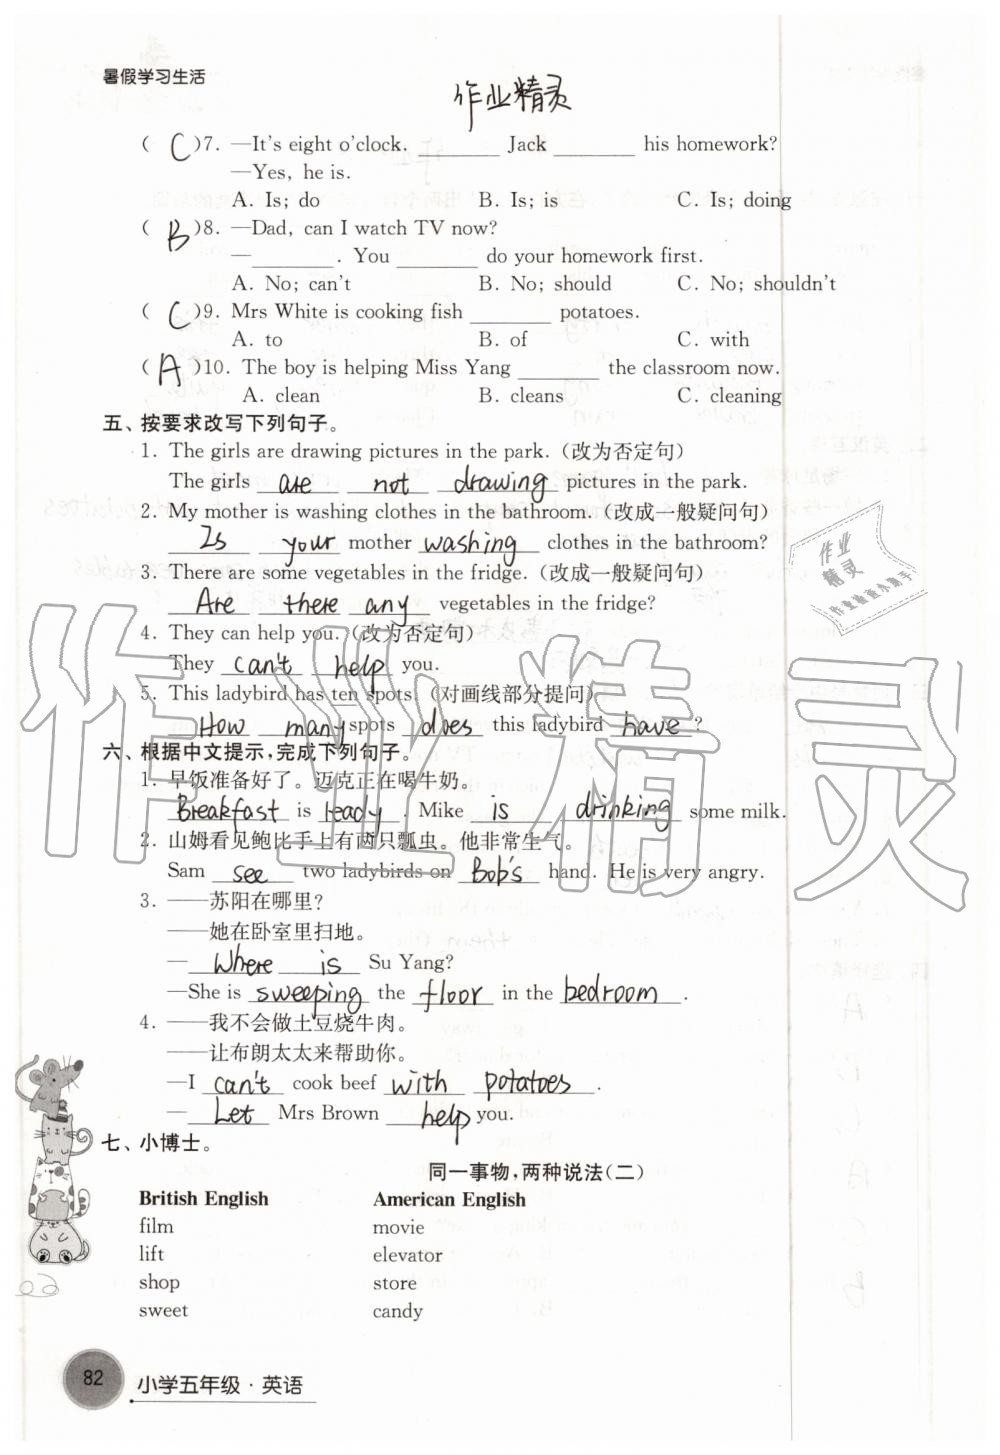 暑假学习生活
作业精灵
( C )7. —It's eight o'clock. ________ Jack ________ his homework?
—Yes, he is.
A. Is; do B. Is; is C. Is; doing
( B )8. —Dad, can I watch TV now?
—________. You ________ do your homework first.
A. No; can't B. No; should C. No; shouldn't
( C )9. Mrs White is cooking fish ________ potatoes.
A. to B. of C. with
( A )10. The boy is helping Miss Yang ________ the classroom now.
A. clean B. cleans C. cleaning
五、按要求改写下列句子。
1. The girls are drawing pictures in the park.(改为否定句)
The girls are not drawing pictures in the park.
2. My mother is washing clothes in the bathroom.(改成一般疑问句)
Is your mother washing clothes in the bathroom?
3. There are some vegetables in the fridge.(改成一般疑问句)
Are there any vegetables in the fridge?
4. They can help you.(改为否定句)
They can't help you.
5. This ladybird has ten spots.(对画线部分提问)
How many spots does this ladybird have?
六、根据中文提示,完成下列句子。
1. 早饭准备好了。迈克正在喝牛奶。
Breakfast is ready. Mike is drinking some milk.
2. 山姆看见鲍比手上有两只瓢虫。他非常生气。
Sam see two ladybirds on Bob's hand. He is very angry.
3. ——苏阳在哪里?
——她在卧室里扫地。
—Where is Su Yang?
—She is sweeping the floor in the bedroom.
4. ——我不会做土豆烧牛肉。
——让布朗太太来帮助你。
—I can't cook beef with potatoes.
—Let Mrs Brown help you.
七、小博士。
同一事物,两种说法(二)
British English American English
film movie
lift elevator
shop store
sweet candy
82
小学五年级·英语
作业精灵
作业
精灵